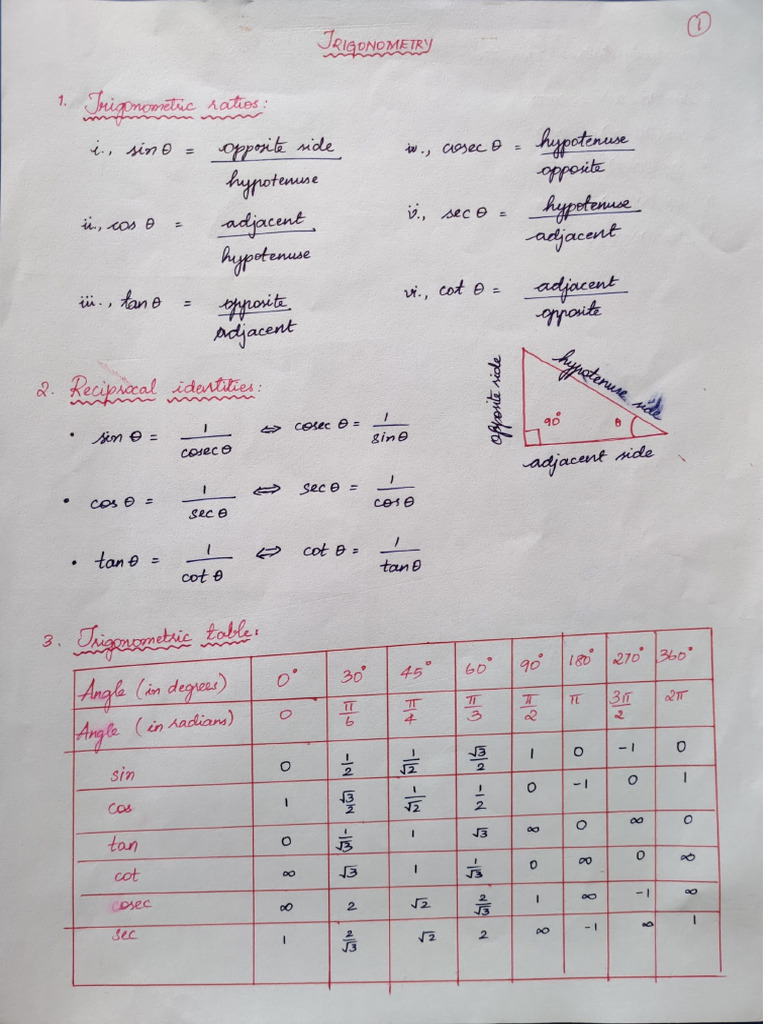 1
TRIGONOMETRY
1. Trigonometric ratios:
i., sin θ = opposite side / hypotenuse
iv., cosec θ = hypotenuse / opposite
ii., cos θ = adjacent / hypotenuse
v., sec θ = hypotenuse / adjacent
iii., tan θ = opposite / adjacent
vi., cot θ = adjacent / opposite
2. Reciprocal identities:
• sin θ = 1 / cosec θ ⇔ cosec θ = 1 / sin θ
• cos θ = 1 / sec θ ⇔ sec θ = 1 / cos θ
• tan θ = 1 / cot θ ⇔ cot θ = 1 / tan θ
opposite side
hypotenuse side
90° θ
adjacent side
3. Trigonometric table:
Angle (in degrees) 0° 30° 45° 60° 90° 180° 270° 360°
Angle (in radians) 0 π/6 π/4 π/3 π/2 π 3π/2 2π
sin 0 1/2 1/√2 √3/2 1 0 -1 0
cos 1 √3/2 1/√2 1/2 0 -1 0 1
tan 0 1/√3 1 √3 ∞ 0 ∞ 0
cot ∞ √3 1 1/√3 0 ∞ 0 ∞
cosec ∞ 2 √2 2/√3 1 ∞ -1 ∞
sec 1 2/√3 √2 2 ∞ -1 ∞ 1